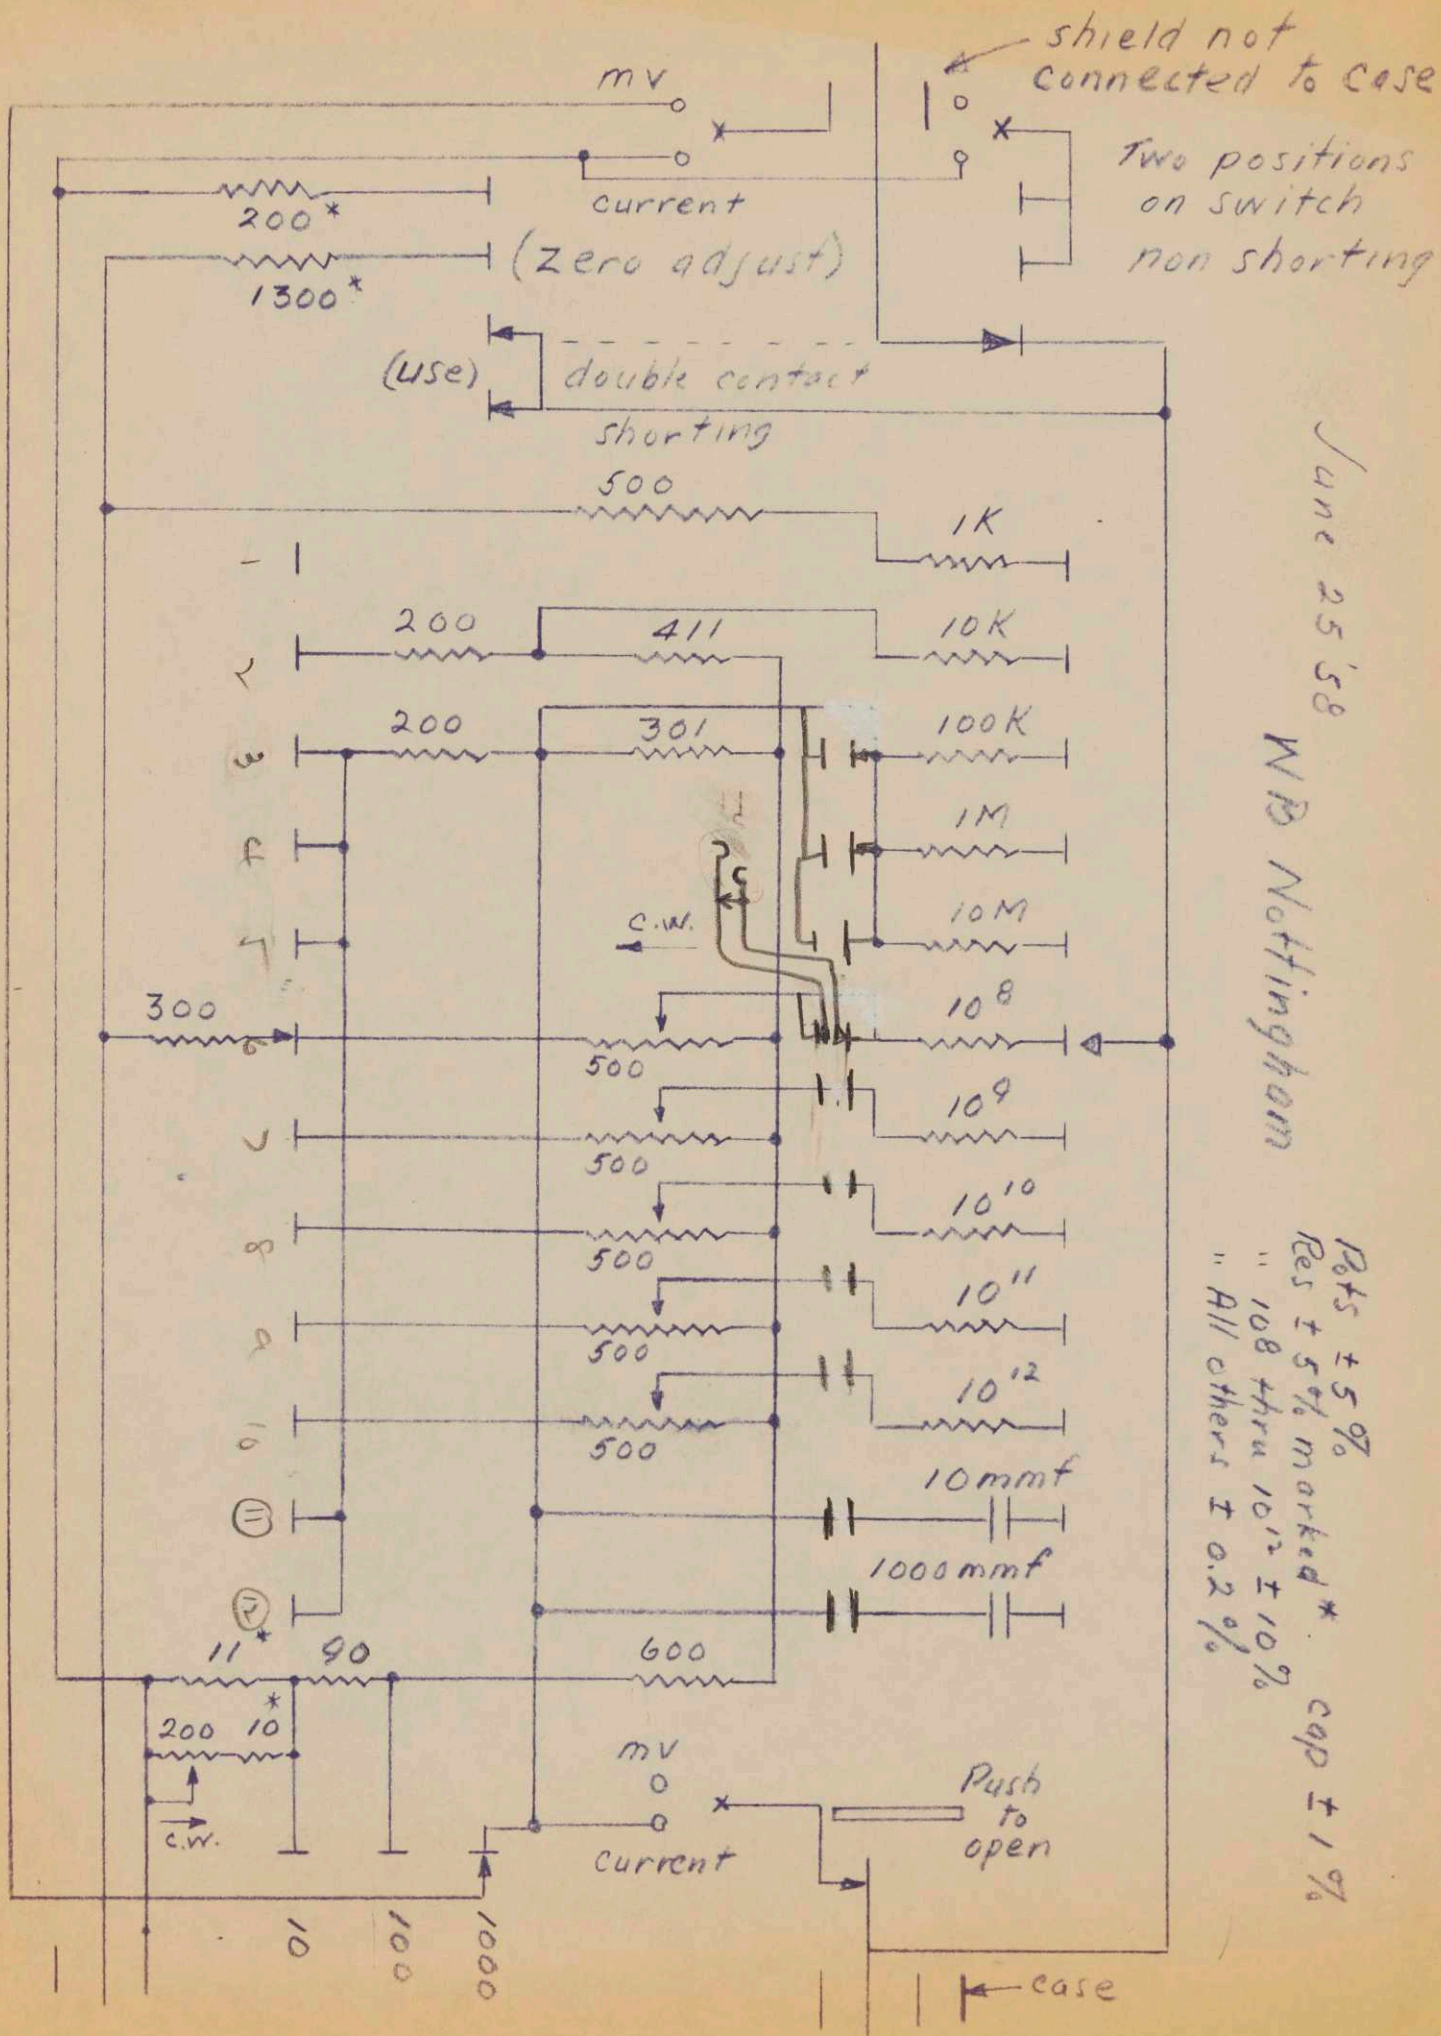 shield not
connected to case
mv
Two positions
on switch
non shorting
current
200*
(Zero adjust)
1300*
(use)
double contact
shorting
500
1K
1
200
411
10K
2
200
301
100K
3
1M
4
10M
5
c.w.
300
10⁸
6
500
10⁹
7
500
10¹⁰
8
500
10¹¹
9
500
10¹²
10
500
10mmf
11
1000mmf
12
11*
90
600
200
10*
c.w.
mv
current
Push
to
open
10
100
1000
case
June 25 '58
WB Nottingham
Pots ± 5%
Res ± 5% marked *.
" 10⁸ thru 10¹² ± 10%
" All others ± 0.2%
cap ± 1%